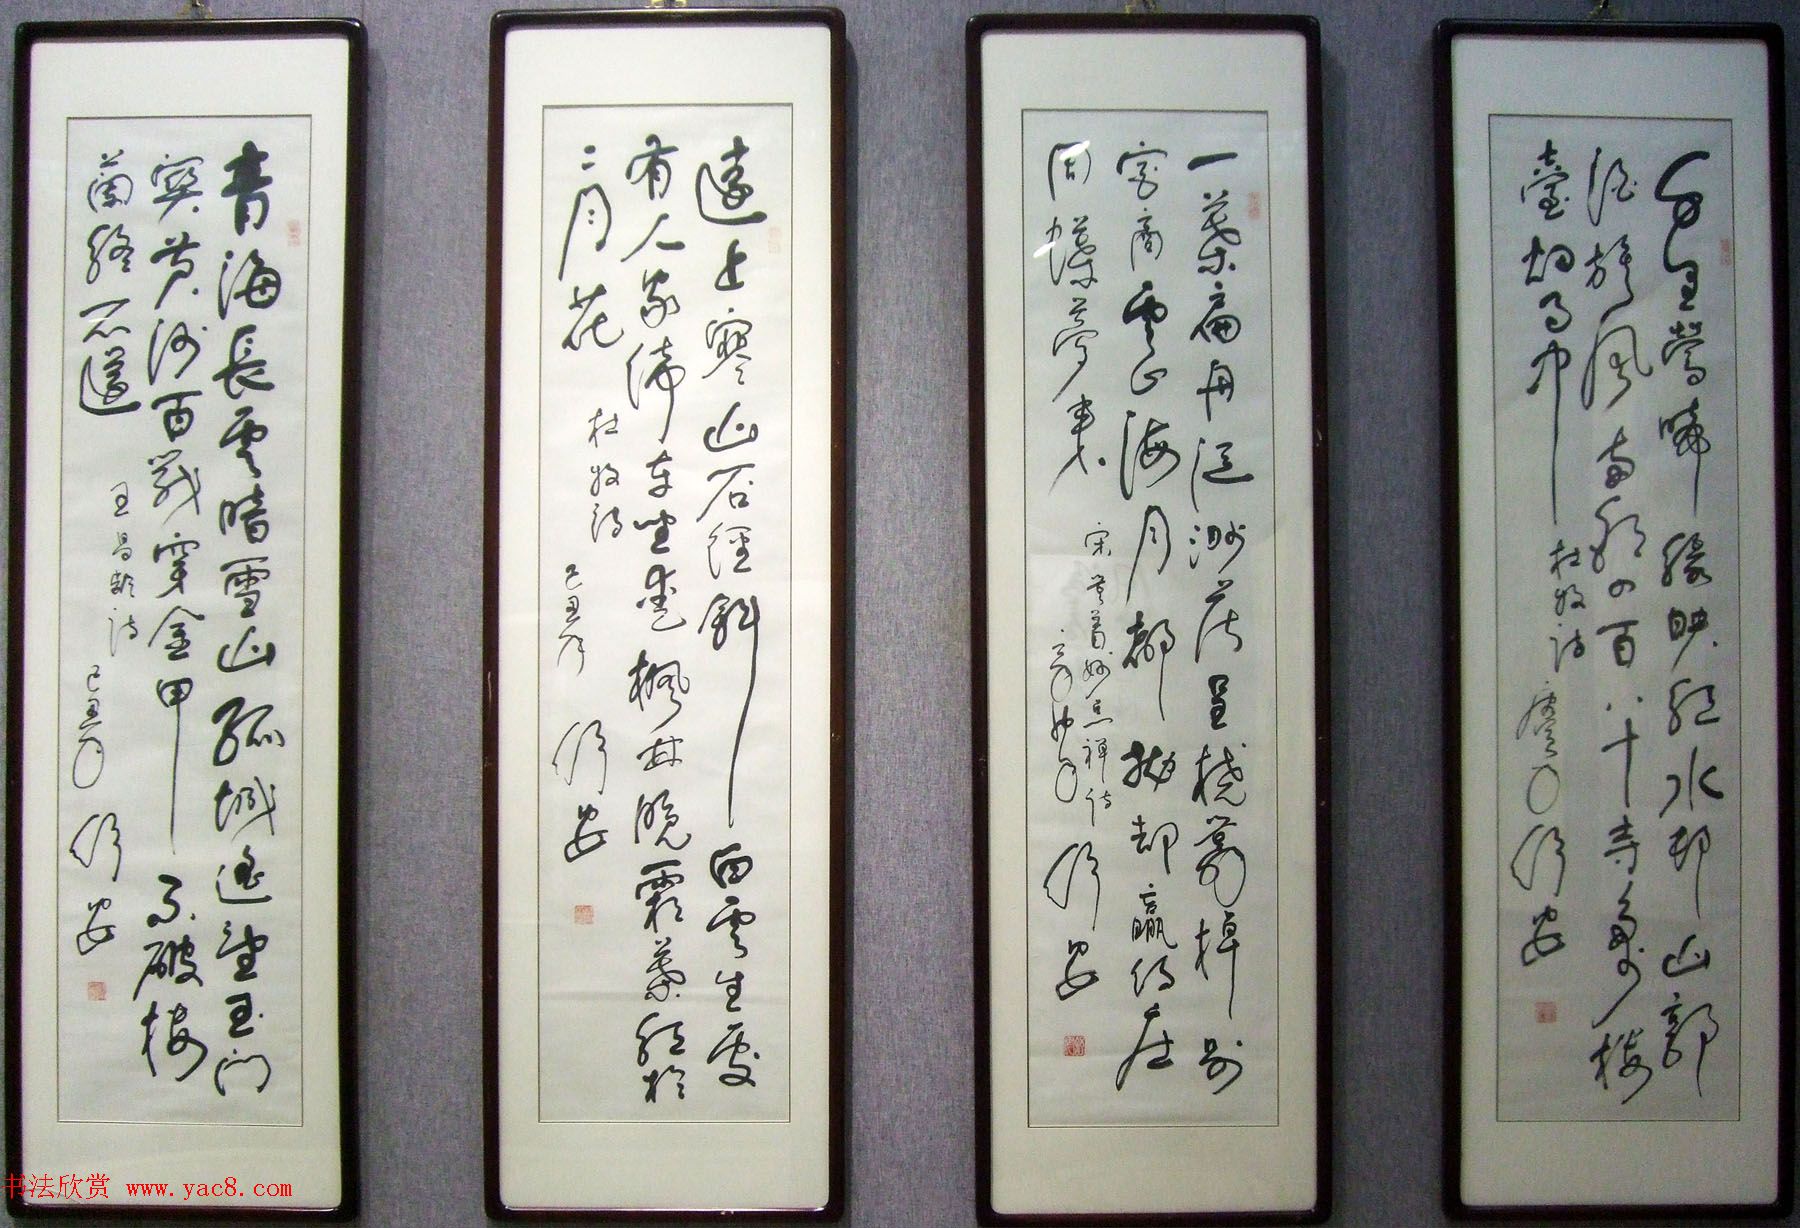 青海長雲暗雪山孤城遙望玉門
關黃沙百戰穿金甲不破樓
蘭終不還
王昌齡詩 己丑
遠上寒山石徑斜白雲生處
有人家停車坐愛楓林晚霜葉紅於
二月花
杜牧詩 己丑
一葉扁舟泛渺茫呈橈舞棹別
宮商雲山海月都拋却贏得莊
周蝶夢長
宋無著妙总禅诗
千里鶯啼綠映紅水村山郭
酒旗風南朝四百八十寺多少樓
臺烟雨中
杜牧詩
书法欣赏 www.yac8.com